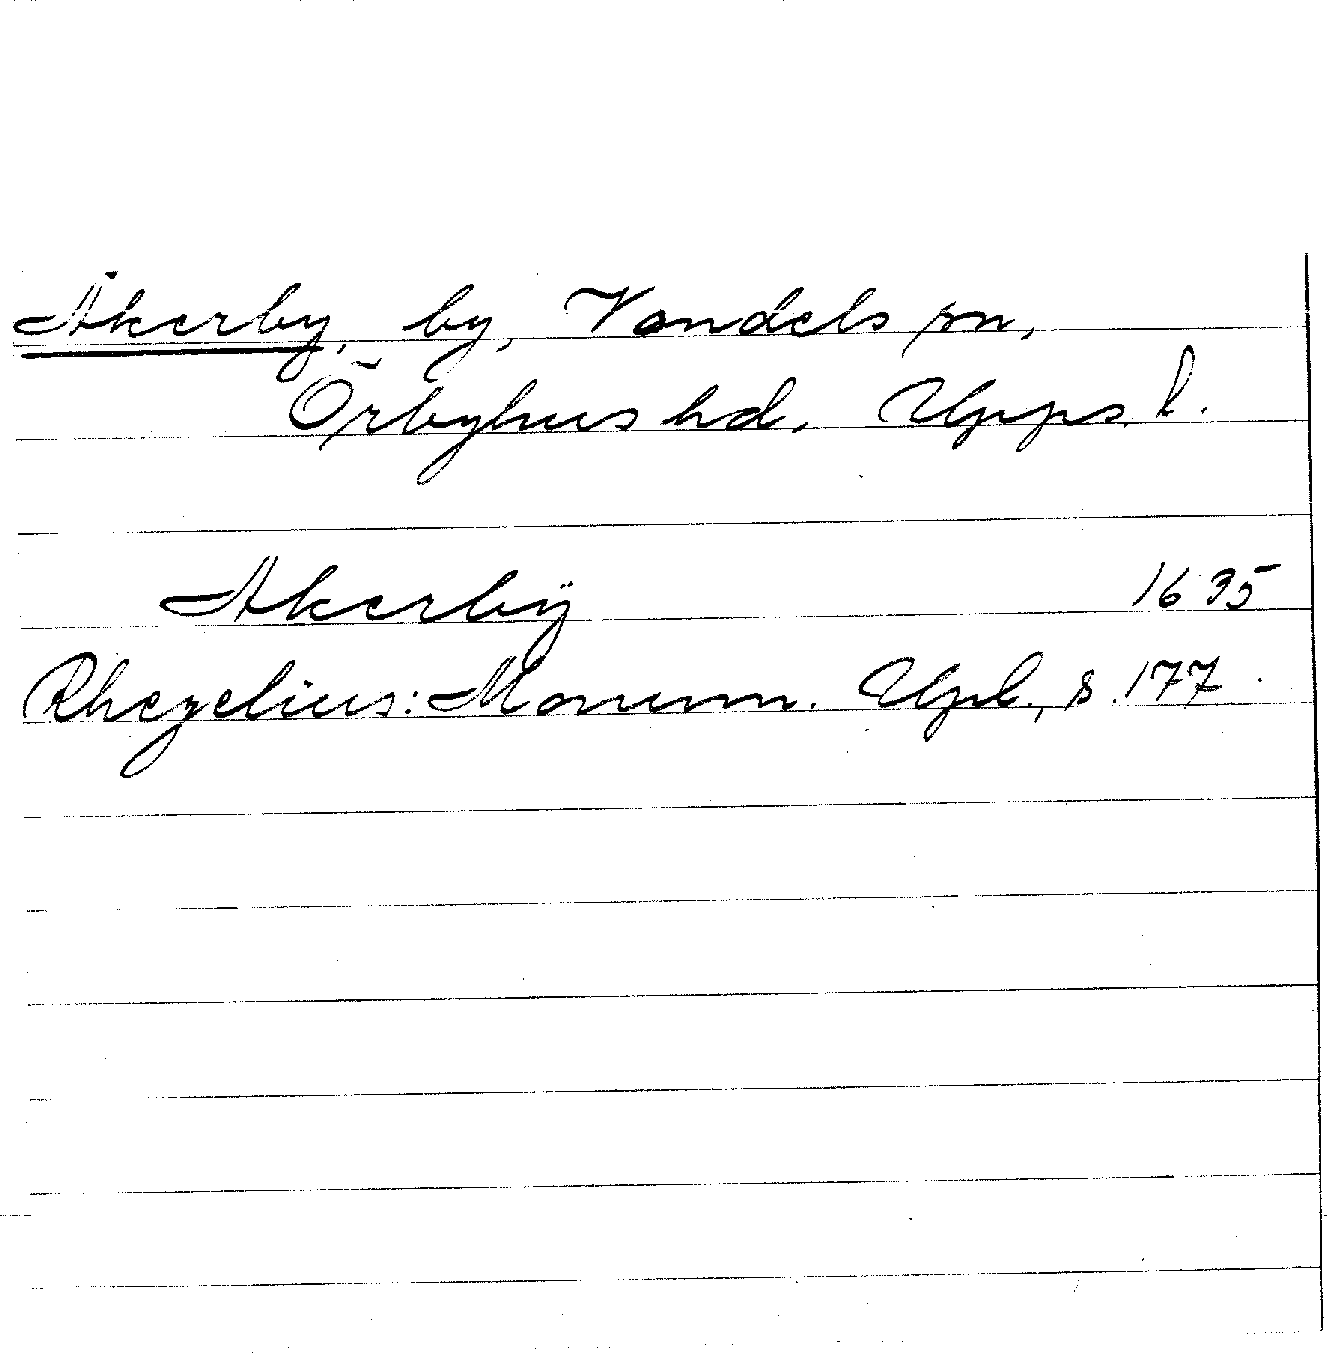 Åkerby, by, Vendels sn,
Örbyhus hd, Upps. l.
Akerbÿ 1635
Rhezelius: Monum. Upl., s. 177.